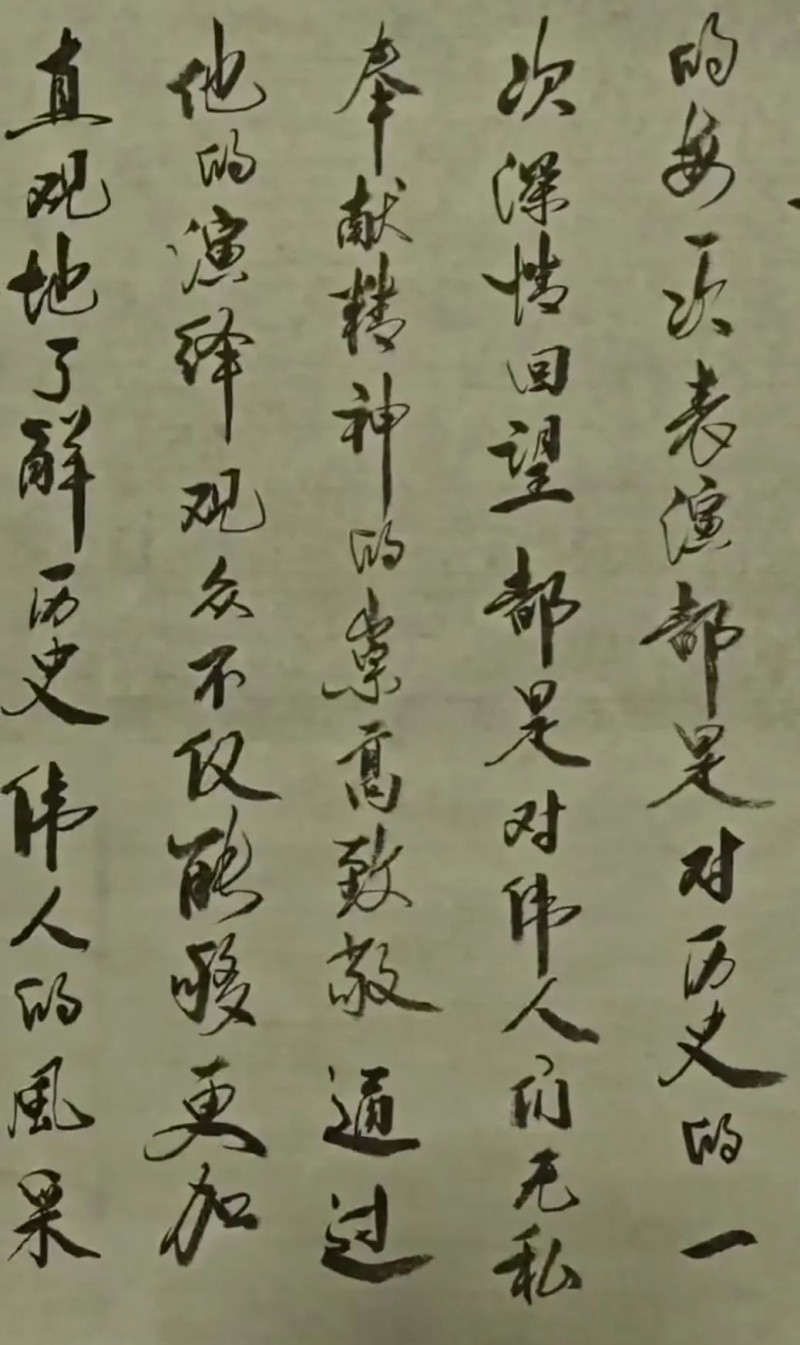 的每一次表演都是对历史的一
次深情回望都是对伟人们无私
奉献精神的崇高致敬通过
他的演绎观众不仅能够更加
直观地了解历史伟人的風采